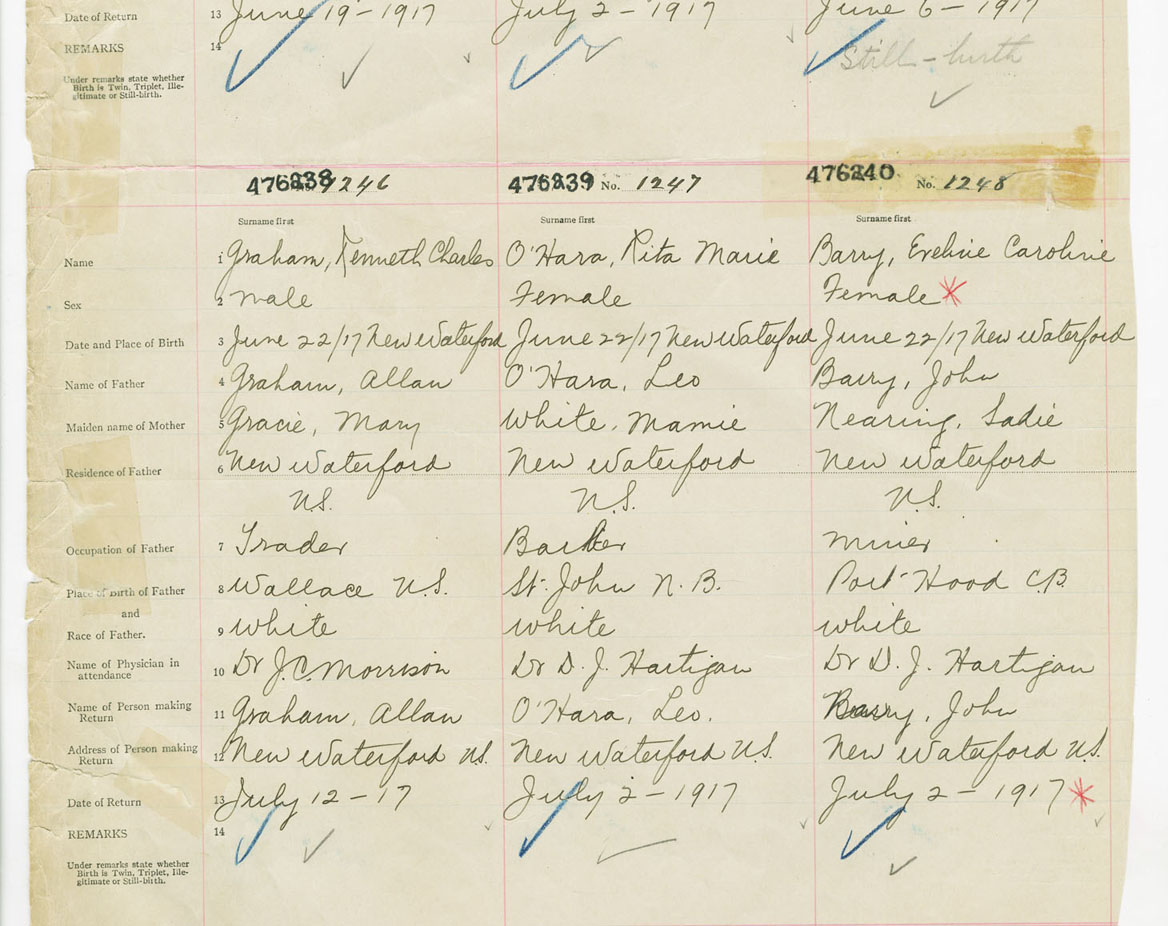 Date of Return 13 June 19-1917 July 2-1917 June 6-1917
REMARKS 14 Still-birth
Under remarks state whether
Birth is Twin, Triplet, Ille-
gitimate or Still-birth.
476238 1246 476239 No. 1247 476240 No. 1248
Surname first Surname first Surname first
Name 1 Graham, Kenneth Charles O'Hara, Rita Marie Barry, Eveline Caroline
Sex 2 male Female Female *
Date and Place of Birth 3 June 22/17 New Waterford June 22/17 New Waterford June 22/17 New Waterford
Name of Father 4 Graham, Allan O'Hara, Leo Barry, John
Maiden name of Mother 5 Gracie, Mary White, Mamie Nearing, Sadie
Residence of Father 6 New Waterford New Waterford New Waterford
N.S. N.S. N.S.
Occupation of Father 7 Trader Barber miner
Place of Birth of Father 8 Wallace N.S. St. John N.B. Port Hood C.B.
and
Race of Father. 9 white white white
Name of Physician in
attendance 10 Dr J.C. Morrison Dr D. J. Hartigan Dr D. J. Hartigan
Name of Person making
Return 11 Graham, Allan O'Hara, Leo. Barry, John
Address of Person making
Return 12 New Waterford N.S. New Waterford N.S. New Waterford N.S.
Date of Return 13 July 12-17 July 2-1917 July 2-1917 *
REMARKS 14
Under remarks state whether
Birth is Twin, Triplet, Ille-
gitimate or Still-birth.